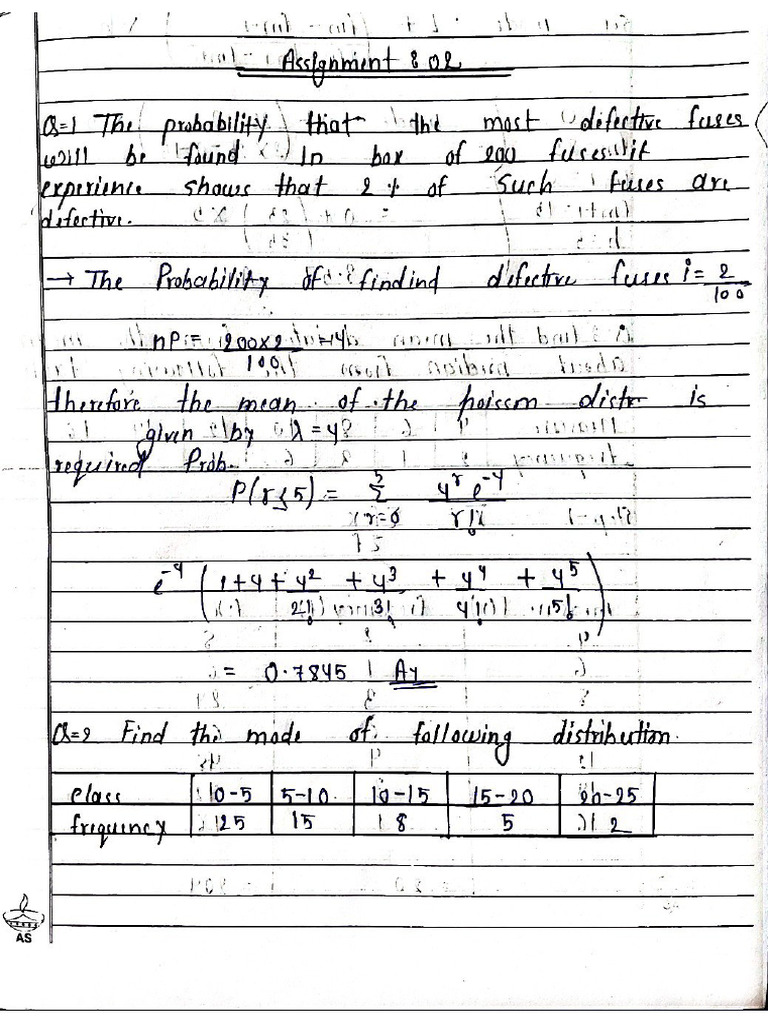 Assignment : 02
Q=1 The probability that the most defective fuses
will be found In box of 200 fuses if
experience shows that 2 % of such fuses are
defective.
→ The Probability of findind defective fuses i = 2/100
nP = 200x2/100 = 4
therefore the mean of the poisson distr is
given by λ = 4
required Prob.
P(r≤5) = 5Σr=0 4^r e^-4 / r!
e^-4 (1+4+4^2/2! + 4^3/3! + 4^4/4! + 4^5/5!)
= 0.7845 Ay
Q=2 Find the mode of following distribution.
class 0-5 5-10. 10-15 15-20 20-25
frequency 25 15 8 5 2
AS